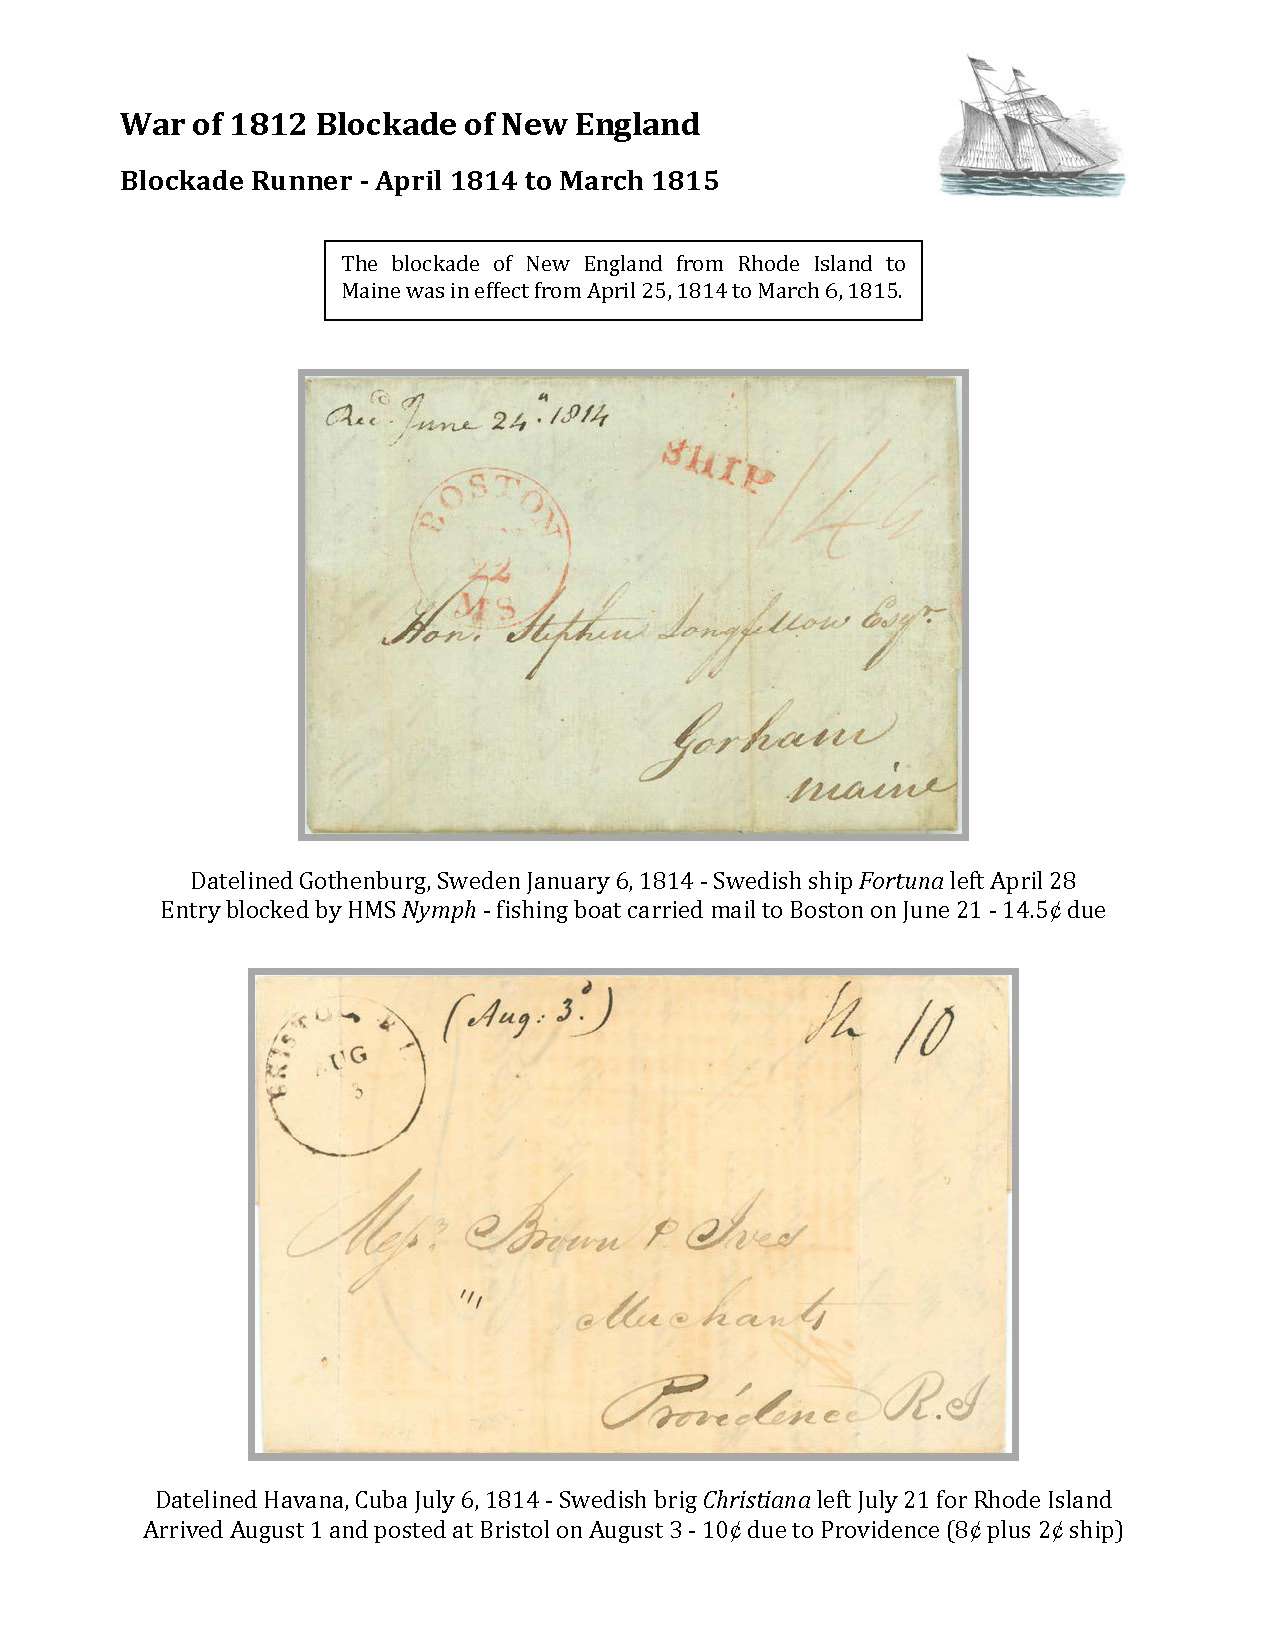 War of 1812 Blockade of New England
Blockade Runner - April 1814 to March 1815
The blockade of New England from Rhode Island to
Maine was in effect from April 25, 1814 to March 6, 1815.
Recd. June 24. 1814
SHIP
14½
BOSTON
22
MS
Hon. Stephen Longfellow Esqr.
Gorham
maine
Datelined Gothenburg, Sweden January 6, 1814 - Swedish ship Fortuna left April 28
Entry blocked by HMS Nymph - fishing boat carried mail to Boston on June 21 - 14.5¢ due
(Aug: 3d.)
Sh 10
BRISTOL R I.
AUG
3
Messrs. Brown & Ives
Merchants
Providence R.I
Datelined Havana, Cuba July 6, 1814 - Swedish brig Christiana left July 21 for Rhode Island
Arrived August 1 and posted at Bristol on August 3 - 10¢ due to Providence (8¢ plus 2¢ ship)